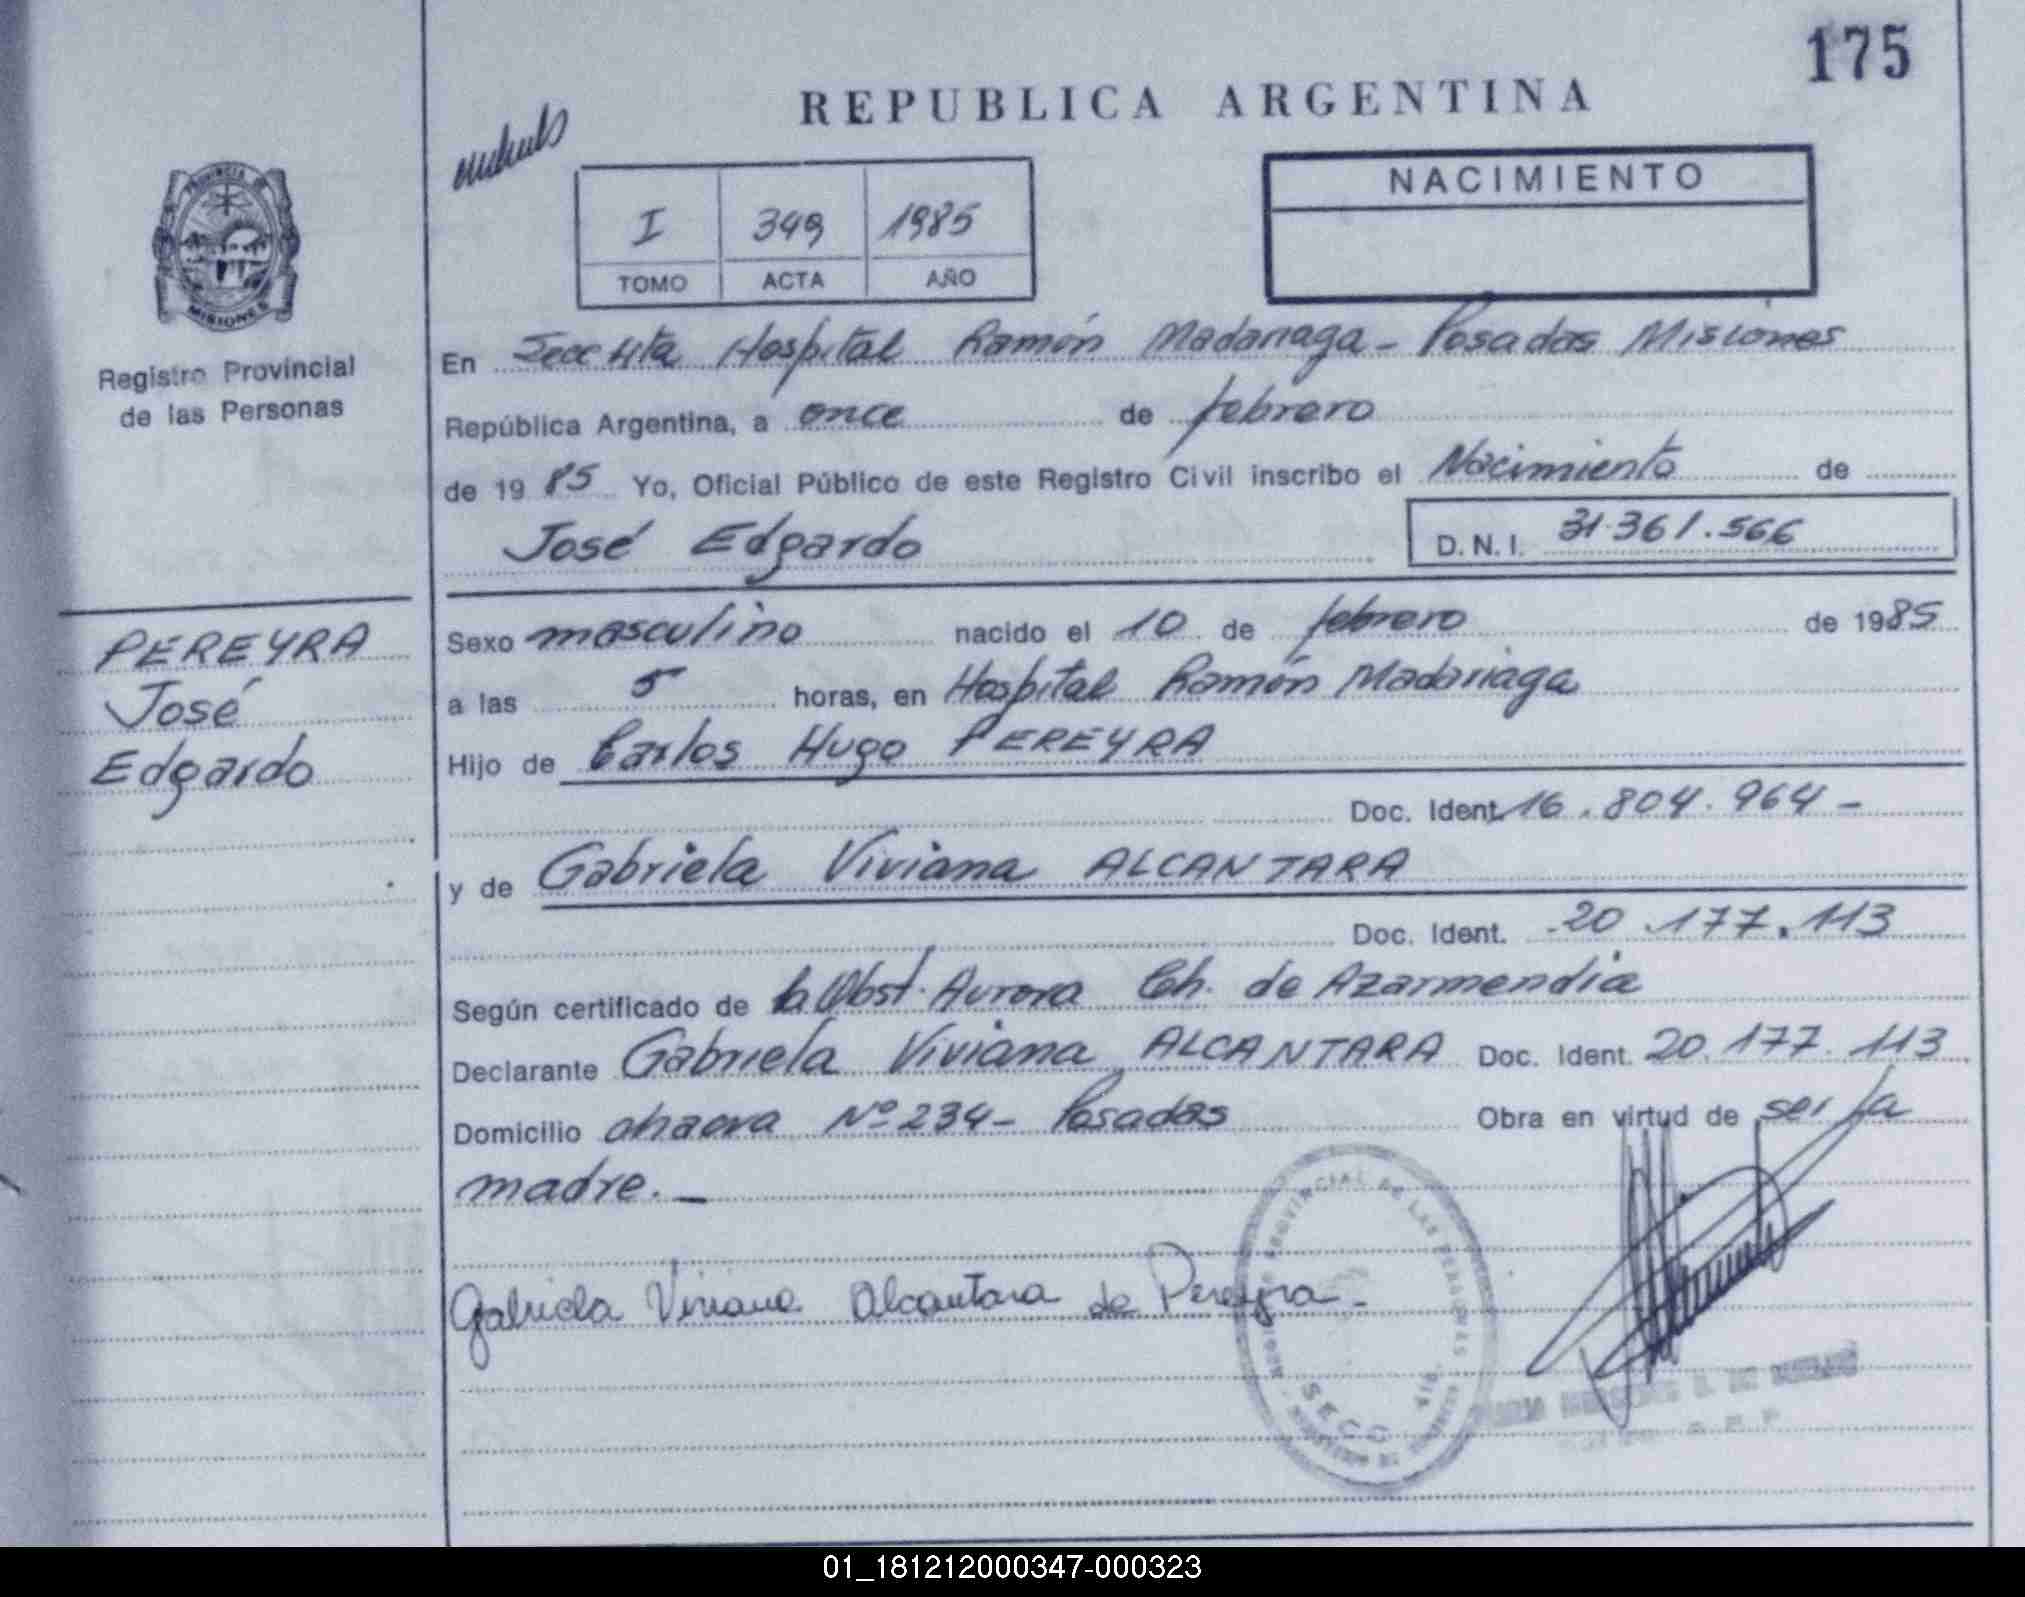 175
REPUBLICA ARGENTINA
I 349 1985
TOMO ACTA AÑO
NACIMIENTO
PROVINCIA DE
MISIONES
Registro Provincial
de las Personas
En Hospital Ramón Madariaga - Posadas Misiones
República Argentina, a once de febrero
de 1985 Yo, Oficial Público de este Registro Civil inscribo el Nacimiento de
José Edgardo D.N.I. 31.361.566
PEREYRA
José
Edgardo
Sexo masculino nacido el 10 de febrero de 1985
a las 5 horas, en Hospital Ramón Madariaga
Hijo de Carlos Hugo PEREYRA
Doc. Ident. 16.804.964 -
y de Gabriela Viviana ALCANTARA
Doc. Ident. 20.177.113
Según certificado de la Obst. Aurora Ch. de Azarmendia
Declarante Gabriela Viviana ALCANTARA Doc. Ident. 20.177.113
Domicilio Nº 234 - Posadas Obra en virtud de ser la
madre. -
Gabriela Viviana Alcantara de Pereyra -
PROVINCIAL DE LAS PERSONAS
01_181212000347-000323